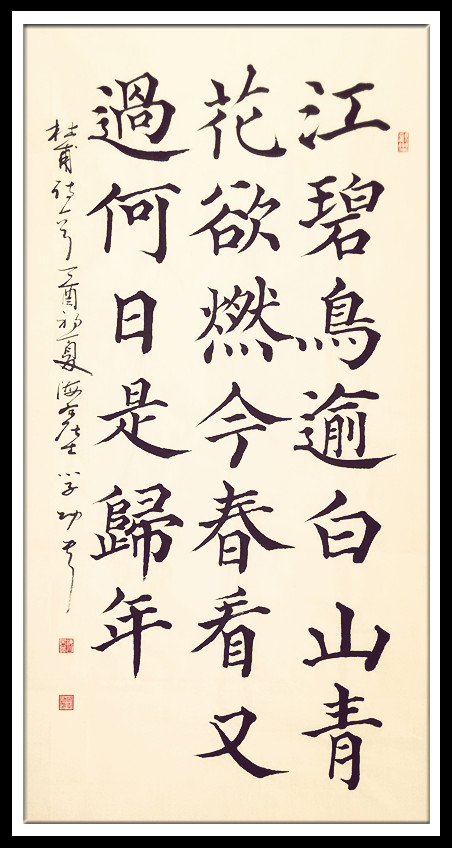 江碧鳥逾白山青
花欲燃今春看又
過何日是歸年
杜甫詩一首丁酉初夏海